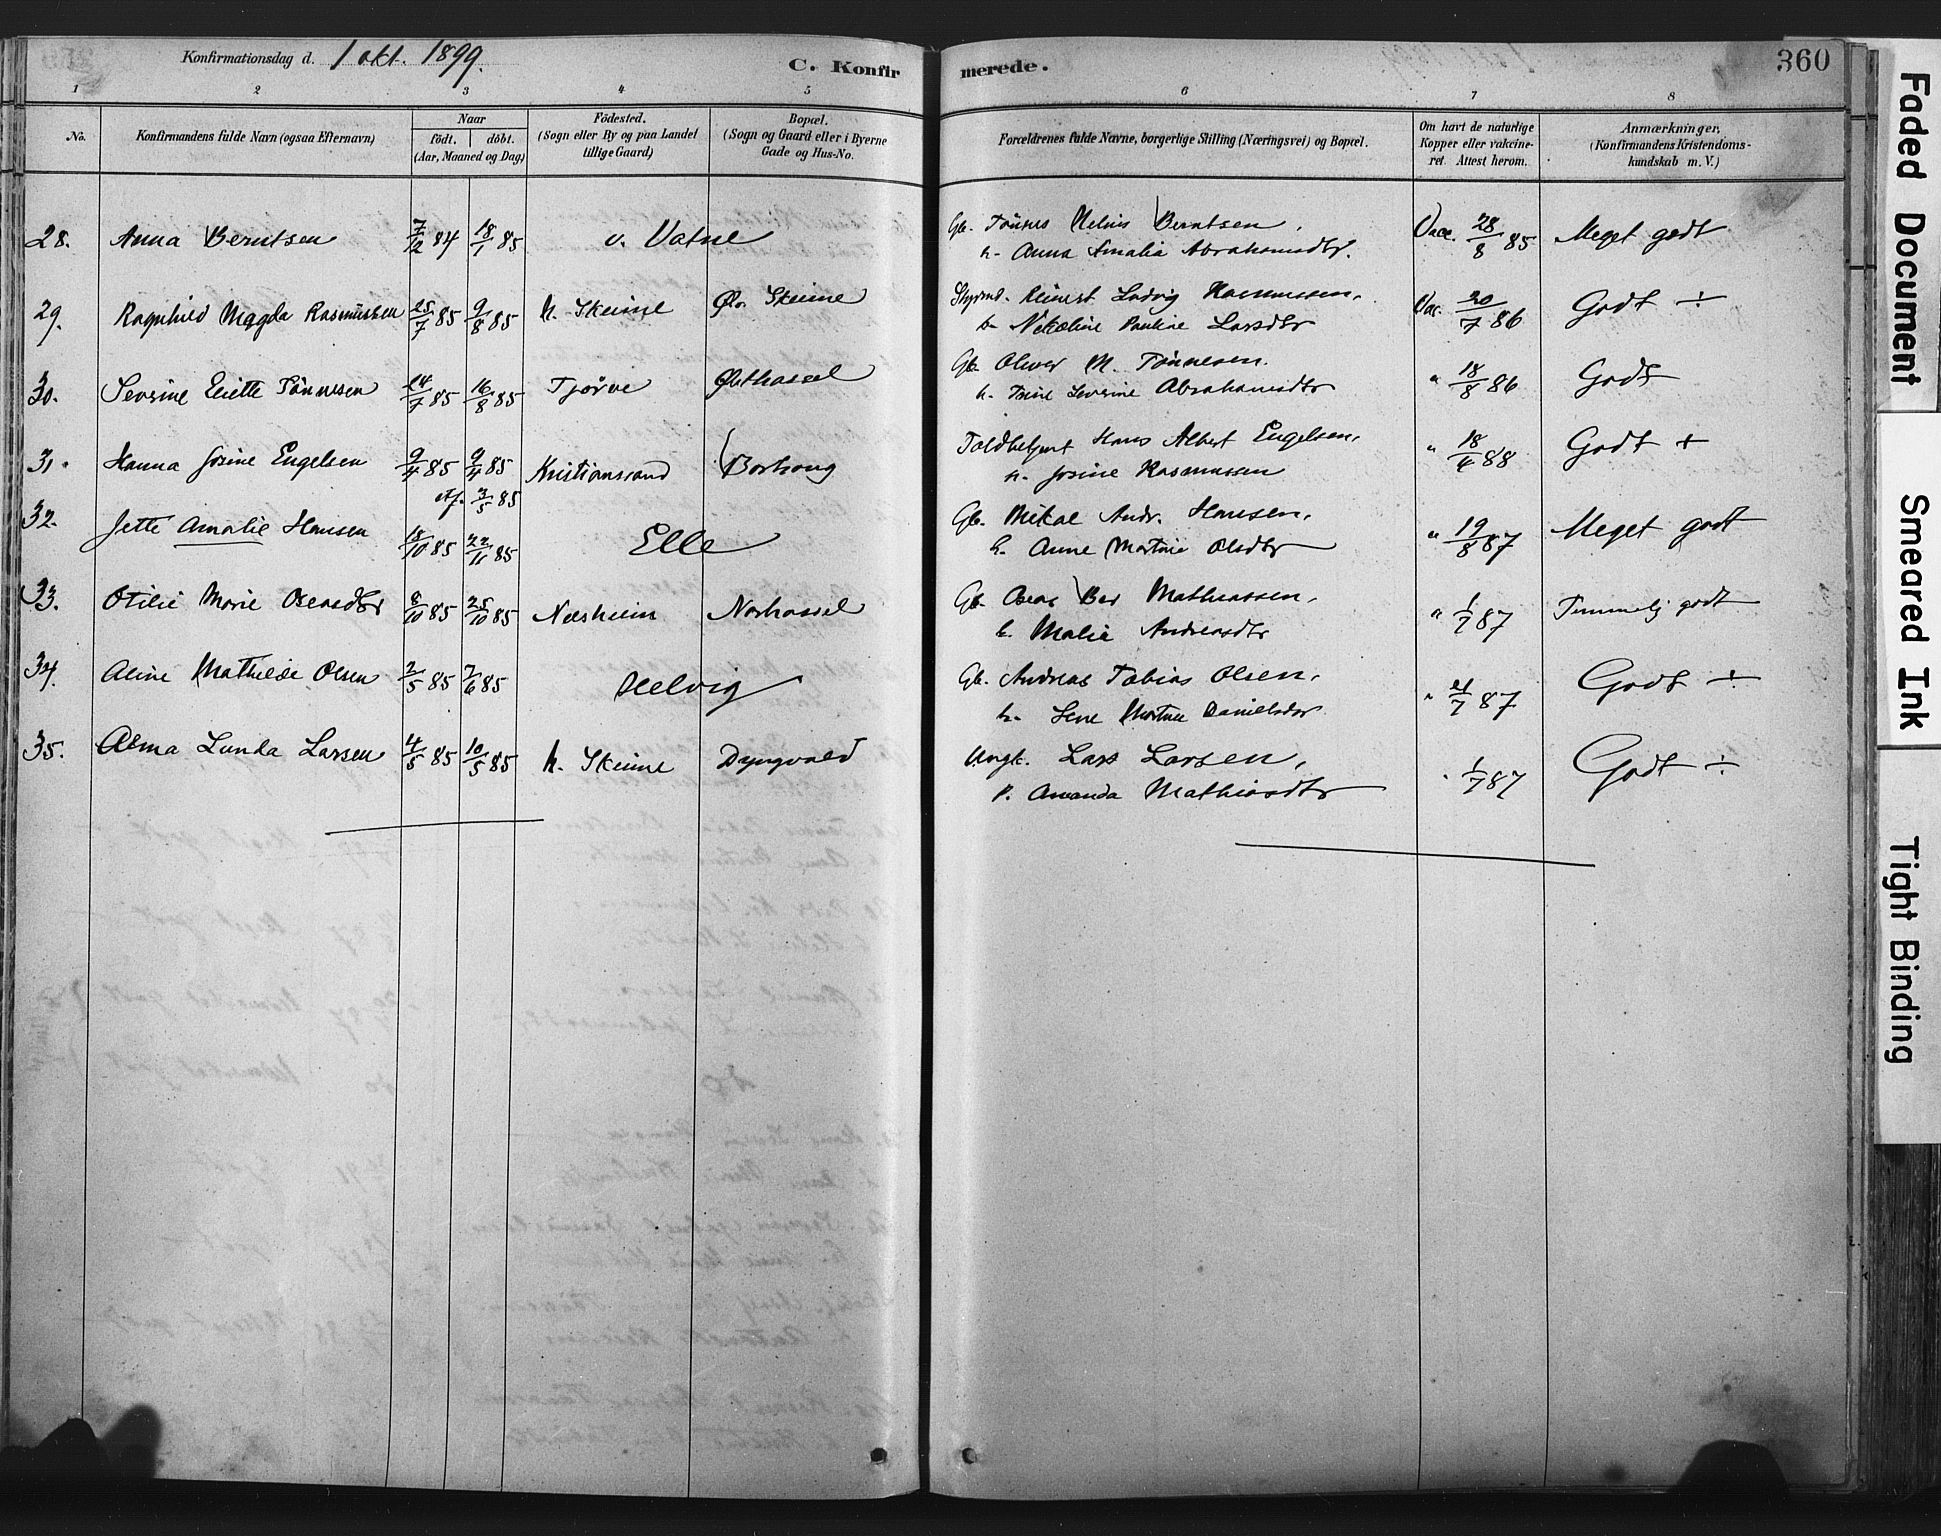 Konfirmationsdag d. 1 okt. 1899.
C. Konfirmerede.
360
1 2 3 4 5 6 7 8
No.
Konfirmandens fulde Navn (ogsaa Efternavn)
Naar
født. døbt.
(Aar, Maaned og Dag)
Fødested.
(Sogn eller By og paa Landet
tillige Gaard)
Bopæl.
(Sogn og Gaard eller i Byerne
Gade og Hus-No.
Forældrenes fulde Navne, borgerlige Stilling (Næringsvei) og Bopæl.
Om havt de naturlige
Kopper eller vakcine-
ret. Attest herom.
Anmærkninger,
(Konfirmandens Kristendoms-
kundskab m. V.)
28. Anna Berntsen 7/12 84 18/1 85 v. Vatne Gb. Tönnes Helius Berntsen, Vacc. 28/8 85 Meget godt
h. Anna Amalia Abrahamsdtr.
29. Ragnhild Magda Rasmussen 25/7 85 9/8 85 h. Skeime Ø. Skeime Styrmd. Reinert Ludvig Rasmussen, Vac. 20/7 86 Godt ÷
h. Nikoline Pauline Larsdtr
30. Severine Eliette Tönnessen 14/7 85 16/8 85 Tjørve Østhassel Gb. Oliver M. Tönnesen. " 18/8 86 Godt
h. Trine Severine Abrahamsdtr
31. Hanna Josine Engelsen 9/4 85 9/4 85 Kristianssand Borhaug Toldbetjent Hans Albert Engelsen, " 18/4 88 Godt +
st. 3/5 85
h. Josine Rasmussen
32. Jette Amalie Hansen 18/10 85 22/11 85 Elle Gb. Mikal Andr. Hansen, " 19/8 87 Meget godt
h. Anne Martine Olsdtr
33. Otilie Marie Oseasdtr 8/10 85 25/10 85 Nesheim Nordhassel Gb. Oseas Ber Mathiassen, " 1/7 87 Temmelig godt
h. Malia Andreasdtr
34. Aline Mathilde Olsen 2/5 85 7/6 85 Helvig Gb. Andreas Tobias Olsen, " 21/7 87 Godt ÷
h. Lene Martine Danielsdtr
35. Alma Lunda Larsen 4/5 85 10/5 85 h. Skeime Dyngvold Ungk. Lars Larsen, " 1/7 87 Godt ÷
P. Amanda Mathiasdtr
Faded Document
Smeared Ink
Tight Binding